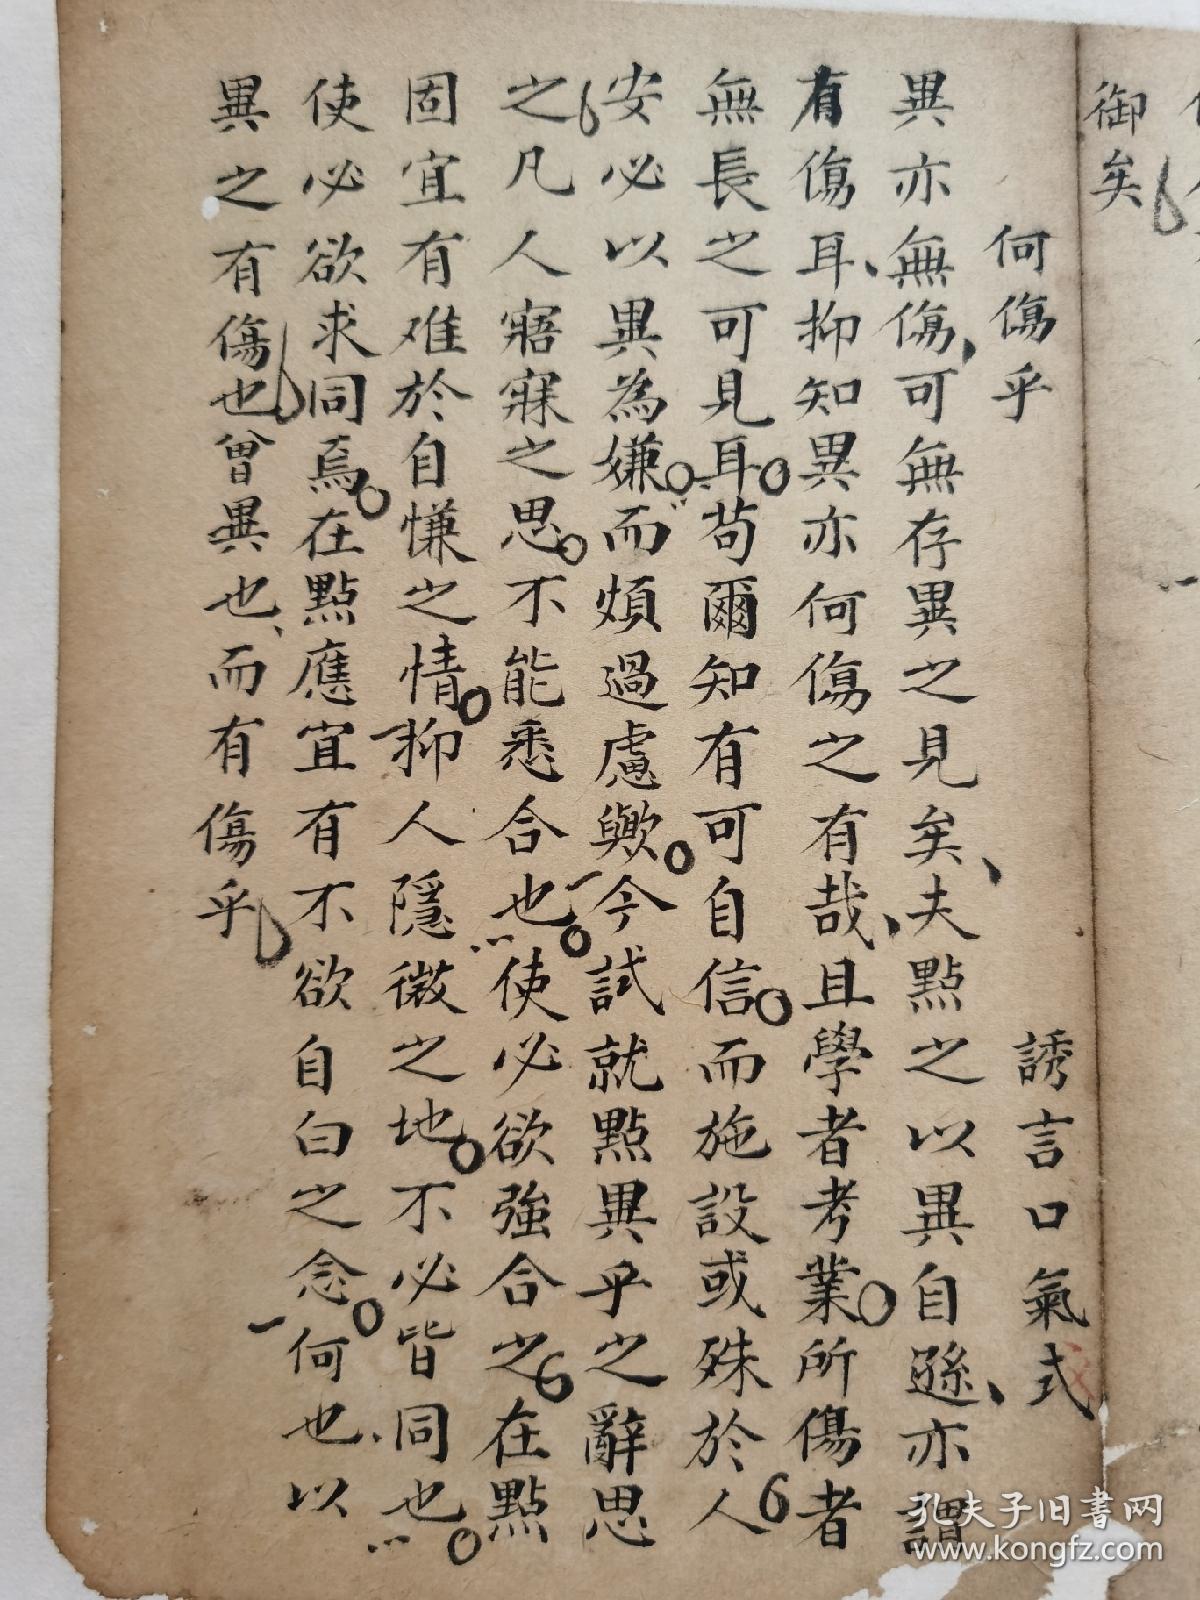 御矣
何傷乎　誘言口氣式
異亦無傷可無存異之見矣夫點之以異自遜亦謂
有傷耳抑知異亦何傷之有哉且學者考業所傷者
無長之可見耳苟爾知有可自信而施設或殊於人
安必以異為嫌而煩過慮歟今試就點異乎之辭思
之凡人寤寐之思不能悉合也使必欲強合之在點
固宜有难於自慊之情抑人隱微之地不必皆同也
使必欲求同焉在點應宜有不欲自白之念何也以
異之有傷也曾異也而有傷乎
孔夫子旧書网
www.kongfz.com